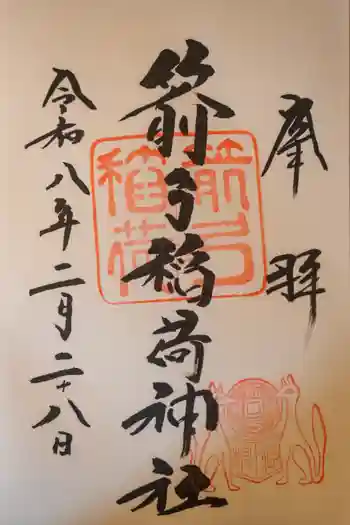 奉拝
箭弓稲荷神社
箭弓
稲荷
令和八年二月二十八日